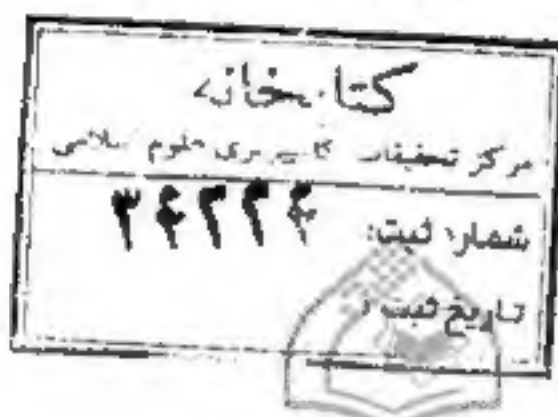 کتابخانه
مرکز تحقیقات کامپیوتری علوم اسلامی
شماره ثبت: ۳۴۲۲۴
تاریخ ثبت: